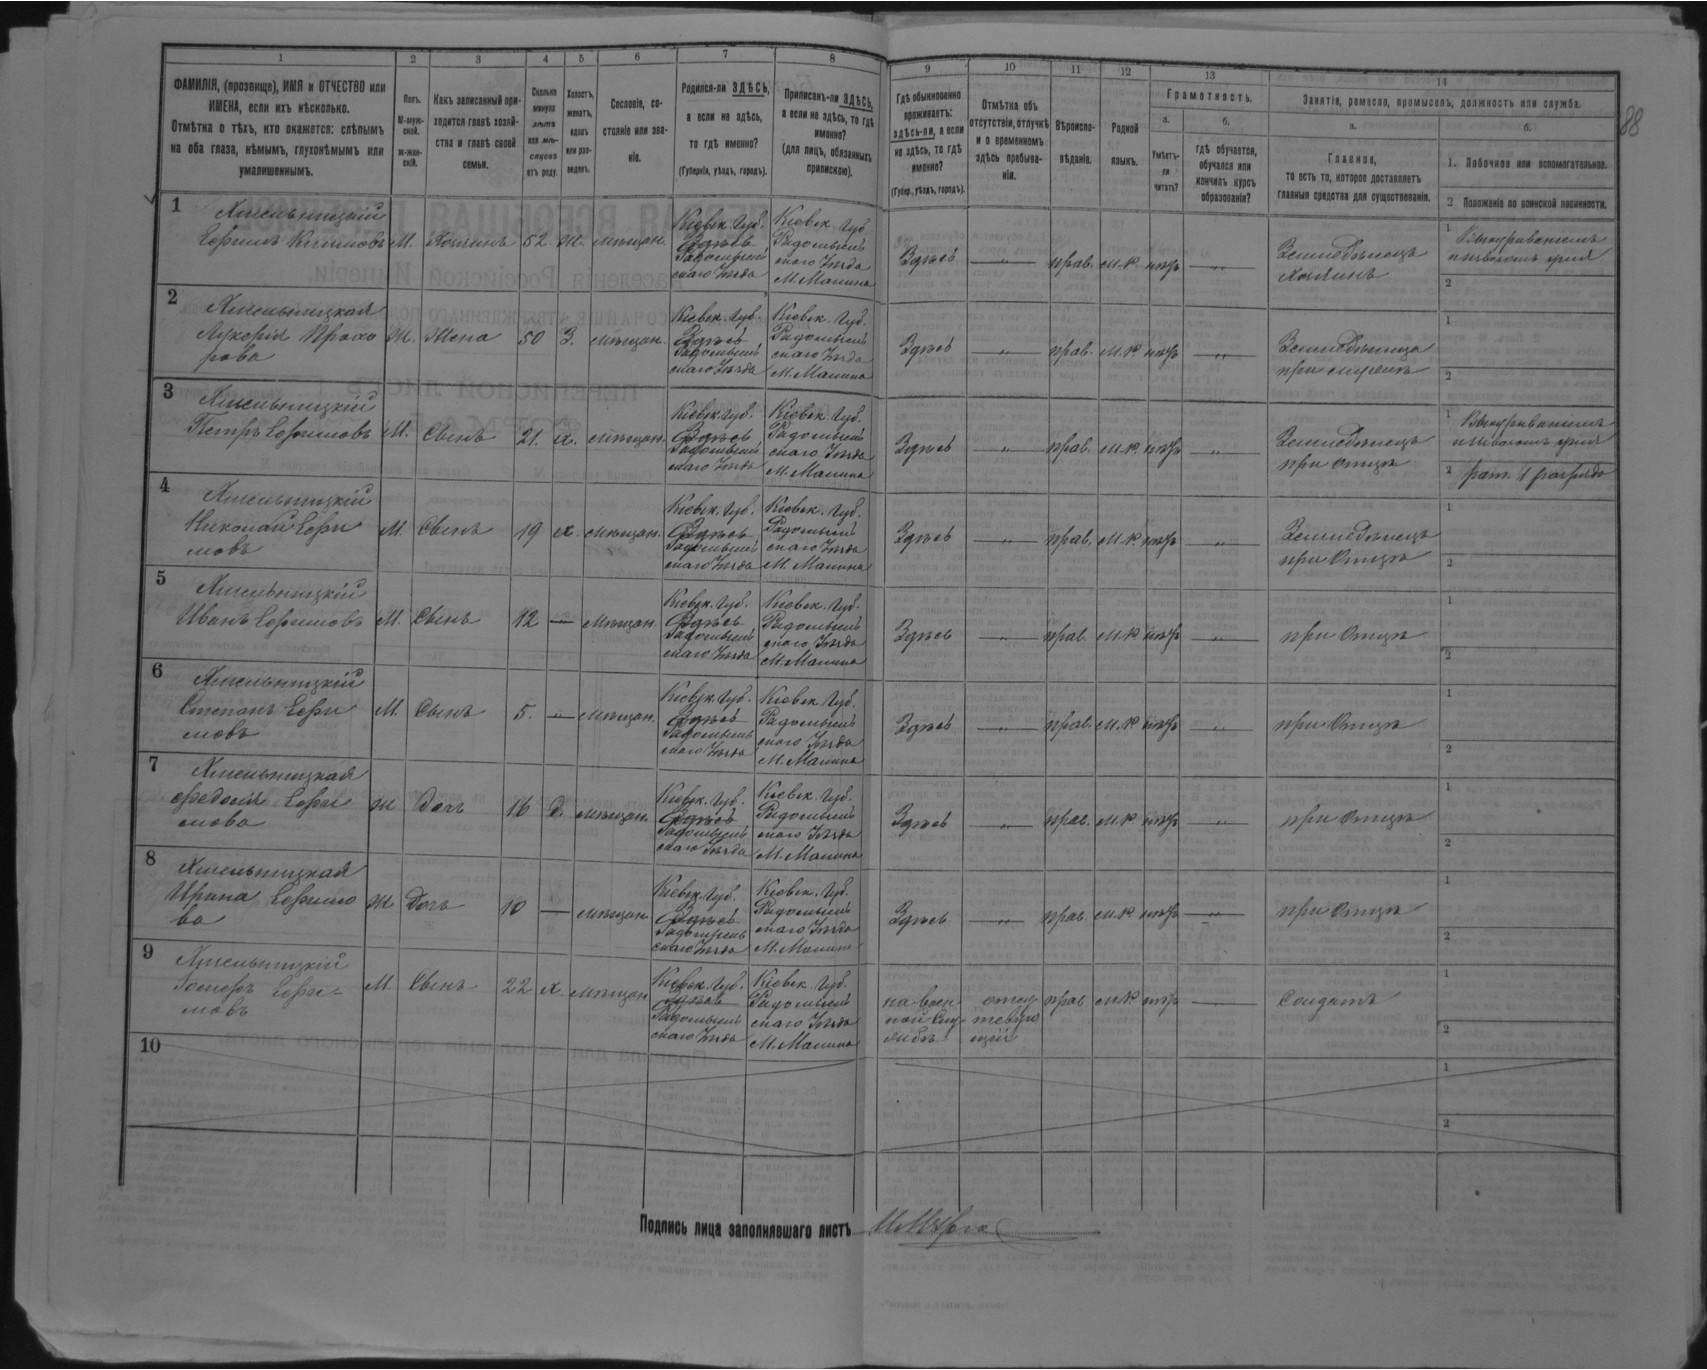 1 2 3 4 5 6 7 8 9 10 11 12 13 14
ФАМИЛІЯ, (прозвище), ИМЯ и ОТЧЕСТВО или
ИМЕНА, если ихъ нѣсколько.
Отмѣтка о тѣхъ, кто окажется: слѣпымъ
на оба глаза, нѣмымъ, глухонѣмымъ или
умалишеннымъ.
Полъ.
М-муж-
ской.
ж-жен-
скій.
Какъ записанный при-
ходится главѣ хозяй-
ства и главѣ своей
семьи.
Сколько
минуло
лѣтъ
или мѣ-
сяцевъ
отъ роду.
Холостъ,
женатъ,
вдовъ
или раз-
веденъ.
Сословіе, со-
стояніе или зва-
ніе.
Родился-ли ЗДѢСЬ,
а если не здѣсь,
то гдѣ именно?
(Губернія, уѣздъ, городъ).
Приписанъ-ли ЗДѢСЬ,
а если не здѣсь, то гдѣ
именно?
(для лицъ, обязанныхъ
припискою).
Гдѣ обыкновенно
проживаетъ:
здѣсь-ли, а если
не здѣсь, то гдѣ
именно?
(Губер., уѣздъ, городъ).
Отмѣтка объ
отсутствіи, отлучкѣ
и о временномъ
здѣсь пребыва-
ніи.
Вѣроиспо-
вѣданіе.
Родной
языкъ.
Грамотность.
а.
Умѣетъ-
ли
читать?
б.
гдѣ обучается,
обучался или
кончилъ курсъ
образованія?
Занятіе, ремесло, промыселъ, должность или служба.
а.
Главное,
то есть то, которое доставляетъ
главныя средства для существованія.
б.
1. Побочное или вспомогательное.
2. Положеніе по воинской повинности.
88
1
Хмельницкій
Ефимъ
М. Хозяинъ 52 ж. мѣщан.
Кіевск. Губ.
Здѣсь
Радомысль
скаго Уѣзда
Кіевск. Губ.
Радомысль
скаго Уѣзда
М. Малина
Здѣсь — „ — прав. м.р — „ —
Земледѣлецъ
хозяинъ
1
2
2
Хмельницкая
Лукерія Прохо
рова
Ж. Жена 50 З. мѣщан.
Кіевск. Губ.
Здѣсь
Радомысль
скаго Уѣзда
Кіевск. Губ.
Радомысль
скаго Уѣзда
М. Малина
Здѣсь — „ — прав. м.р — „ —
Земледѣлица
при мужѣ
1
2
3
Хмельницкій
Петръ Ефимовъ
М. Сынъ 21. х. мѣщан.
Кіевск. Губ.
Здѣсь
Радомысль
скаго Уѣзда
Кіевск. Губ.
Радомысль
скаго Уѣзда
М. Малина
Здѣсь — „ — прав. м.р — „ —
Земледѣлецъ
при Отцѣ
1
2 рат. 1 разряда
4
Хмельницкій
Николай Ефи
мовъ
М. Сынъ 19 х. мѣщан.
Кіевск. Губ.
Здѣсь
Радомысль
скаго Уѣзда
Кіевск. Губ.
Радомысль
скаго Уѣзда
М. Малина
Здѣсь — „ — прав. м.р — „ —
Земледѣлецъ
при Отцѣ
1
2
5
Хмельницкій
Иванъ Ефимовъ
М. Сынъ 12 — мѣщан.
Кіевск. Губ.
Здѣсь
Радомысль
скаго Уѣзда
Кіевск. Губ.
Радомысль
скаго Уѣзда
М. Малина
Здѣсь — „ — прав. м.р — „ —
при Отцѣ
1
2
6
Хмельницкій
Степанъ Ефи
мовъ
М. Сынъ 5. — мѣщан.
Кіевск. Губ.
Здѣсь
Радомысль
скаго Уѣзда
Кіевск. Губ.
Радомысль
скаго Уѣзда
М. Малина
Здѣсь — „ — прав. м.р — „ —
при Отцѣ
1
2
7
Хмельницкая
Федосія Ефи
мова
Ж Дочь 16 д. мѣщан.
Кіевск. Губ.
Здѣсь
Радомысль
скаго Уѣзда
Кіевск. Губ.
Радомысль
скаго Уѣзда
М. Малина
Здѣсь — „ — прав. м.р — „ —
при Отцѣ
1
2
8
Хмельницкая
Ирина Ефимо
ва
Ж Дочь 10 — мѣщан
Кіевск. Губ.
Здѣсь
Радомысль
скаго Уѣзда
Кіевск. Губ.
Радомысль
скаго Уѣзда
М. Малина
Здѣсь — „ — прав. м.р — „ —
при Отцѣ
1
2
9
Хмельницкій
Ефи-
мовъ
М. Сынъ 22 х. мѣщан
Кіевск. Губ.
Здѣсь
Радомысль
скаго Уѣзда
Кіевск. Губ.
Радомысль
скаго Уѣзда
М. Малина
на воен
ной Слу
жбѣ
отсу
тствую
щій
прав м.р —
Солдатъ
1
2
10
1
2
Подпись лица заполнявшаго листъ